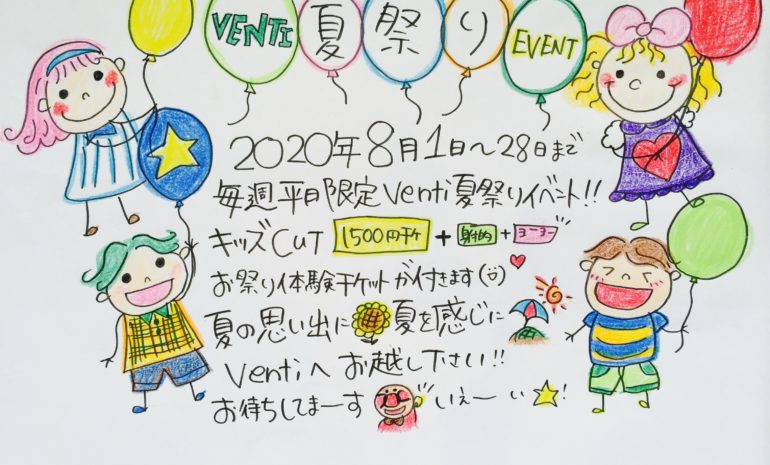 VENTI 夏祭り EVENT
2020年8月1日〜28日まで
毎週平日限定Venti夏祭りイベント!!
キッズCUT 1500円チケ + 射的 + ヨーヨー
お祭り体験チケットが付きます
夏の思い出に夏を感じに
Ventiへお越し下さい!!
お待ちしてまーす いえーい!